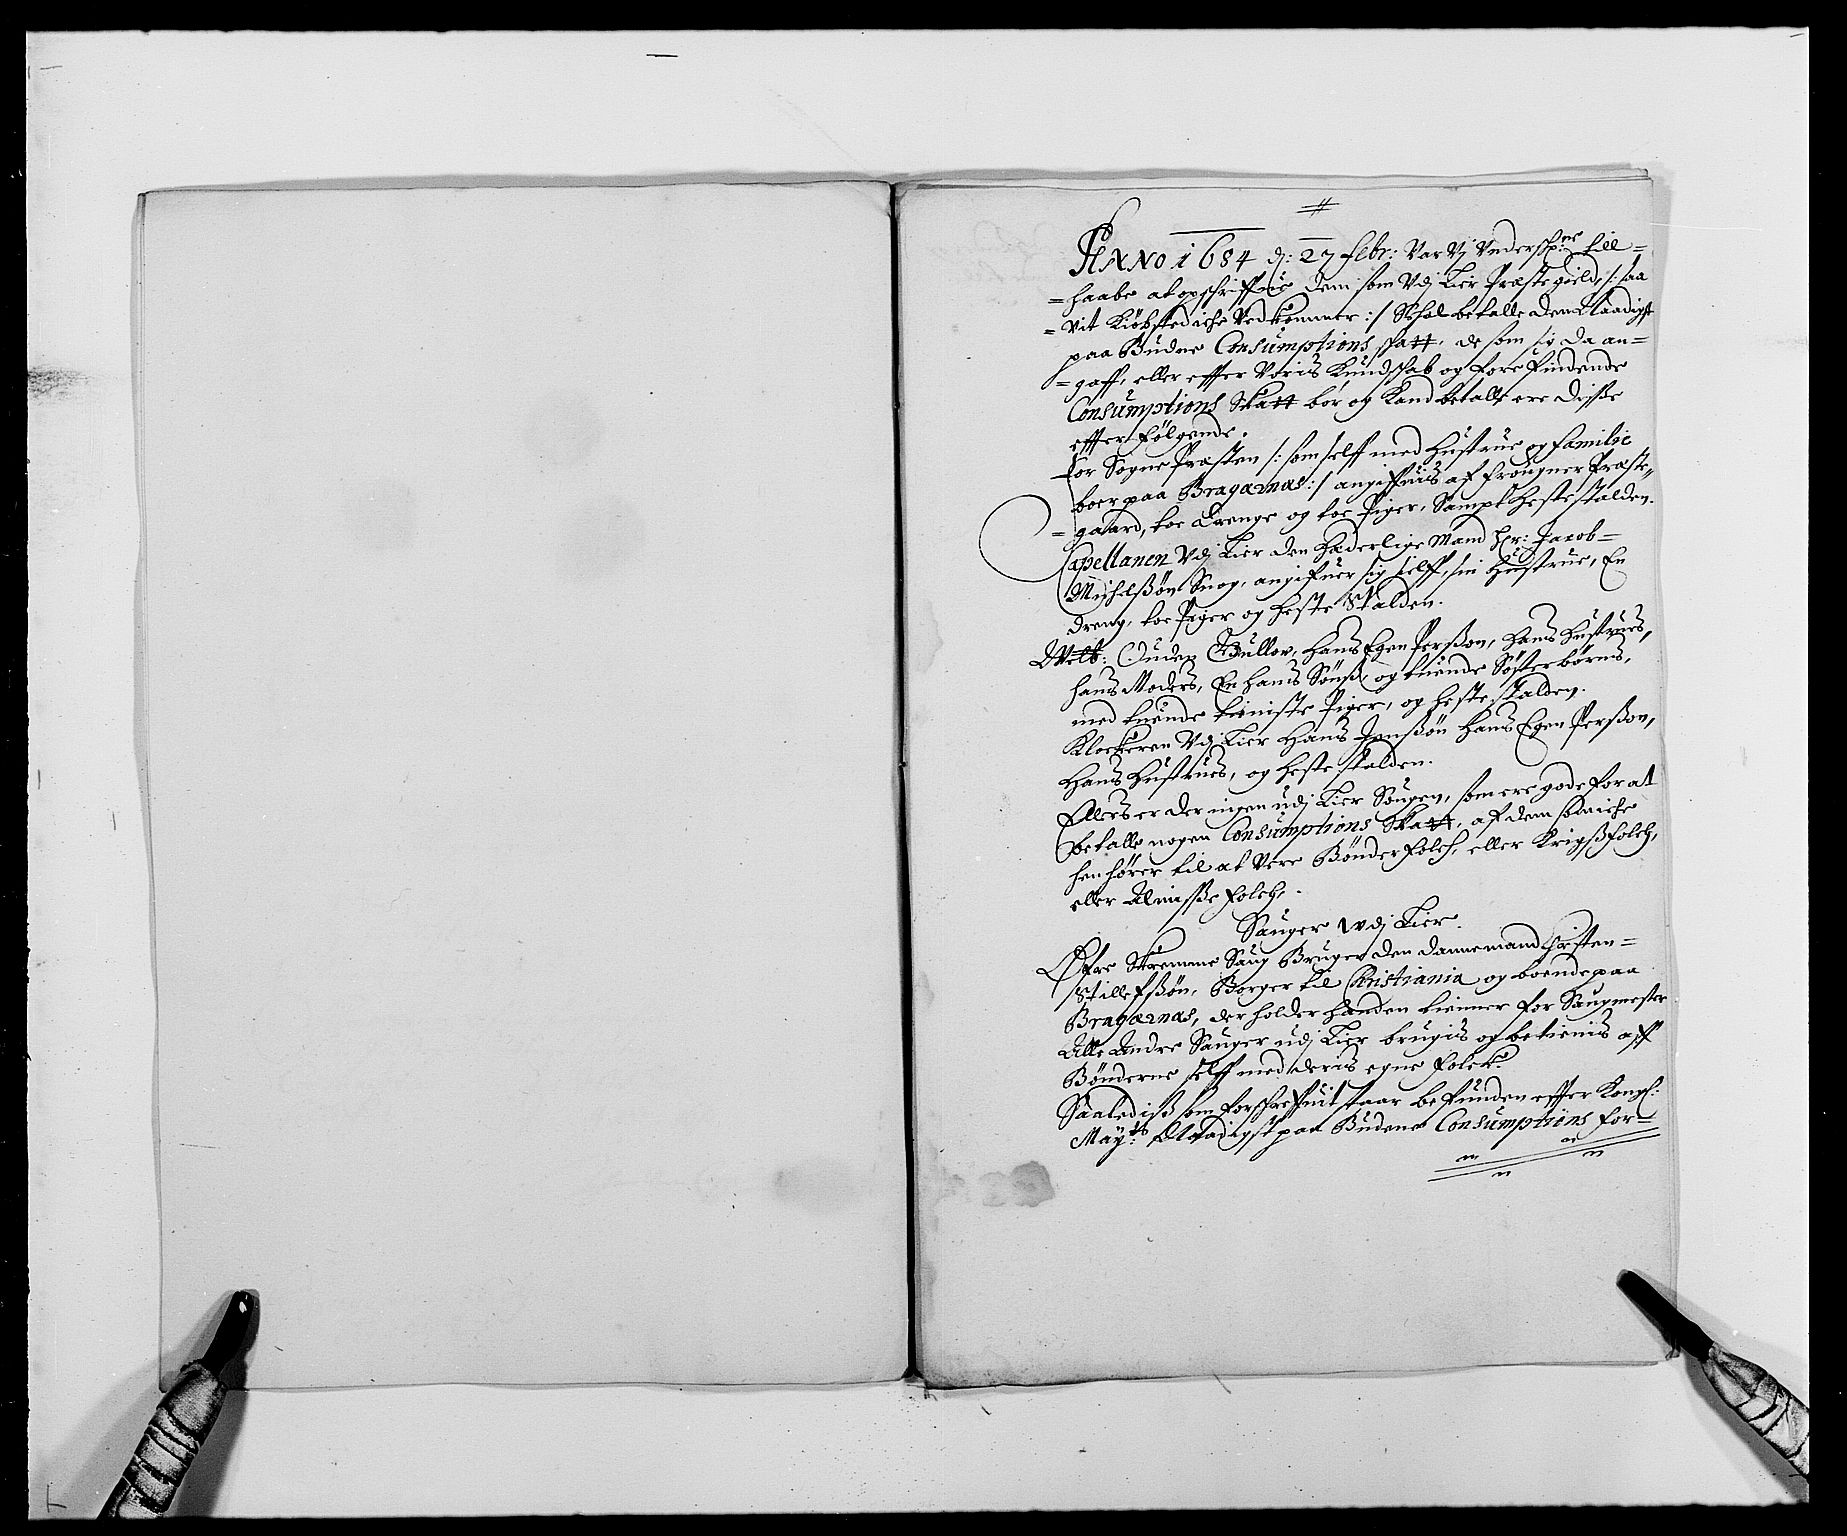 Anno 1684 d: 27 Febr: Var Vj Underschr:ne till=
=haabe at opschriffue dem som Udj Lier Præstegield /: saa
=vit Kiøbstediche Vedkommer :/ Schal betalle dem Naadigst
paa Budne Consumptions skatt, de som sig da an=
=gaff, eller effter Voris Kundskab og forefindende
Consumptions Skatt bør og Kand betalle ere disse
effterfølgende.
For Sogne Præsten /: som self med Hustrue og familie
boer paa Bragærnæs :/ angiffuis af Frougner Præste=
=gaard, toe drenge og toe Piger, Sampt Hestestalden.
Capellanen Udj Lier den Hæderlige Mand Hr: Jacob=
Michelßøn Snog, angifuer sig self, sin Hustrue, En
dreng, toe Piger og Heste Stalden.
Welb: Ouden Gullov, hans Egen Persson, hans Hustrues,
hans Moders, En hans Sønß, og tuende Søsterbørns,
med tuende tieniste Piger, og Hestestalden.
Klockeren Udj Lier Hans Jenßøn hans Egen Persson,
Hans Hustrues, og Heste stalden.
Ellers er der ingen udj Lier Sougen, som ere gode for at
betalle nogen Consumptions Skatt, af dem som iche
henhører til at Vere Bønderfolch, eller Krigsfolch,
eller Almisse folch.
Sauger Udj Lier.
Øfre Skremme Saug Bruger den dannemand Christen=
Stillefßøn, Borger til Christiania og boende paa
Bragærnæs, der holder handen tienner for Saugmester
Alle Andre Sauger udj Lier brugis og betienis aff
Bønderne self med deris egne folck.
Saaledis som forschrefvit staar befunden effter Kongl:
May:ts Allernaadigst paa Budene Consumptions for=